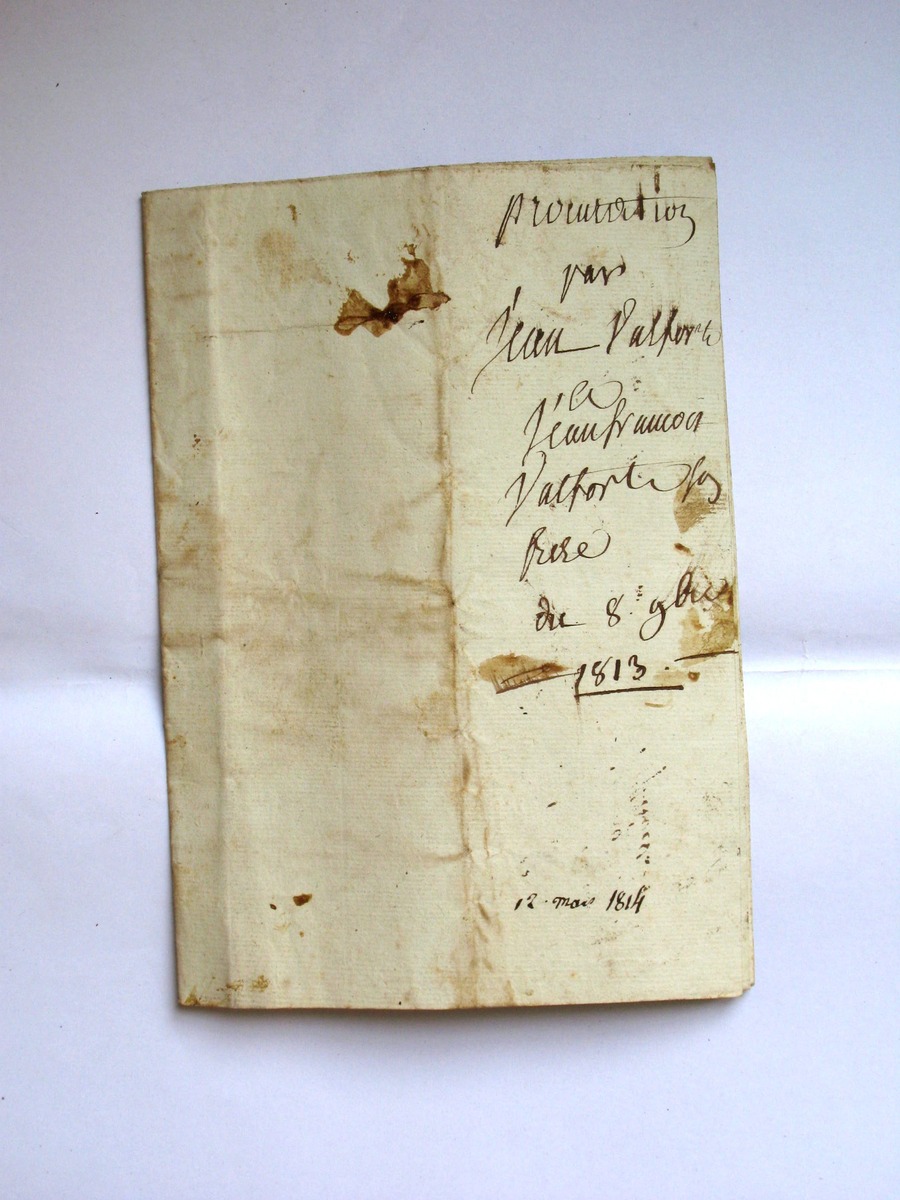 procuration
par
Jean Valforte
a
Jean francois
Valforte son
frere
du 8 9bre
1813
12 mars 1814